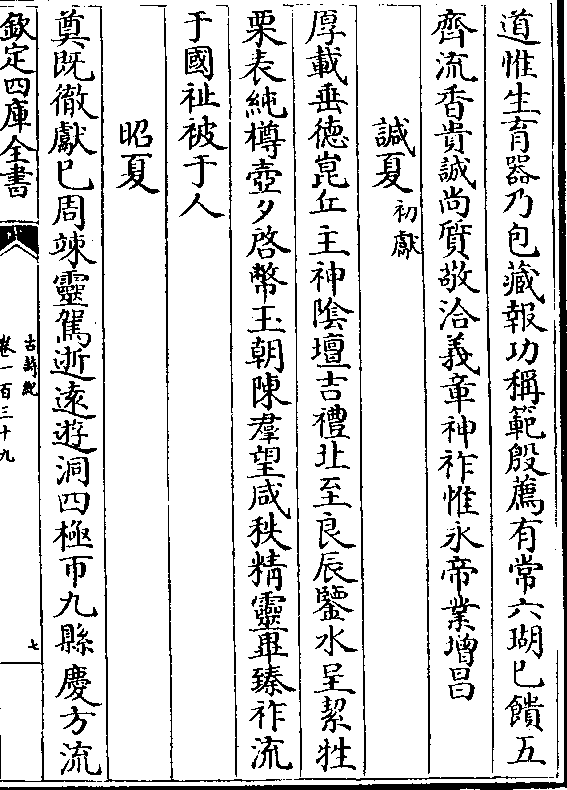 道惟生育器乃包藏報功稱範殷薦有常六瑚巳饋五
齊流香貴誠尚質敬洽義章神祚惟永帝業增昌
諴夏初獻
厚載垂德崑丘主神陰壇吉禮北至良辰鑒水呈潔牲
栗表純樽壺夕啓幣玉朝陳羣望咸秩精靈畢臻祚流
于國祉被于人
昭夏
奠既徹獻巳周竦靈駕逝遠遊洞四極帀九縣慶方流
欽定四庫全書
古詩紀
卷一百三十九
七